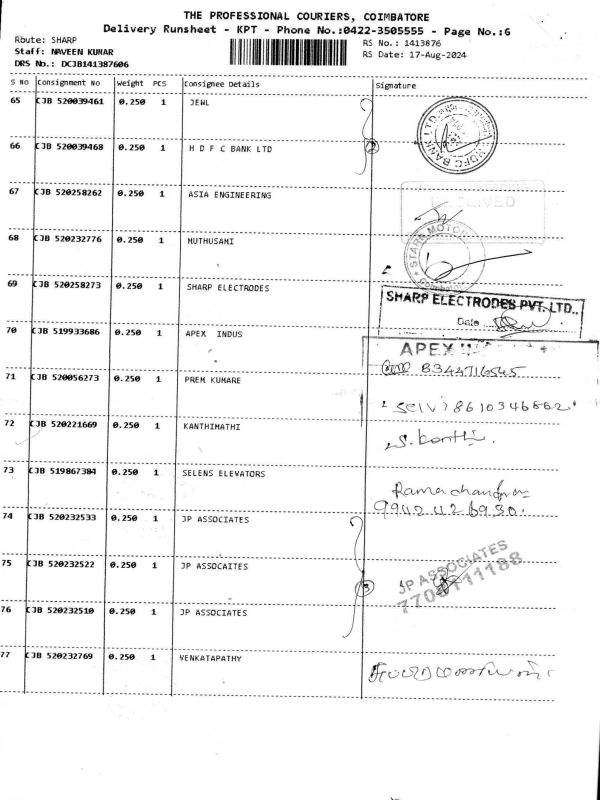 THE PROFESSIONAL COURIERS, COIMBATORE
Delivery Runsheet - KPT - Phone No.:0422-3505555 - Page No.:6
Route: SHARP
RS No.: 1413876
Staff: NAVEEN KUMAR
RS Date: 17-Aug-2024
DRS No.: DCJB141387606
S No Consignment No Weight PCS Consignee Details Signature
65 CJB 520039461 0.250 1 JEWL
HDFC BANK LTD.
66 CJB 520039468 0.250 1 H D F C BANK LTD 2
67 CJB 520258262 0.250 1 ASIA ENGINEERING
RECEIVED
68 CJB 520232776 0.250 1 MUTHUSAMI
STARK MOTOR
69 CJB 520258273 0.250 1 SHARP ELECTRODES
SHARP ELECTRODES PVT. LTD..
Date
70 CJB 519933686 0.250 1 APEX INDUS
APEX
8344716545
71 CJB 520056273 0.250 1 PREM KUMARE
selvi 8610346662
72 CJB 520221669 0.250 1 KANTHIMATHI
S. Kanthi
73 CJB 519867384 0.250 1 SELENS ELEVATORS
Ramachandran
9942426930.
74 CJB 520232533 0.250 1 JP ASSOCIATES
75 CJB 520232522 0.250 1 JP ASSOCAITES 3
JP ASSOCIATES
7708111188
76 CJB 520232510 0.250 1 JP ASSOCIATES
77 CJB 520232769 0.250 1 VENKATAPATHY